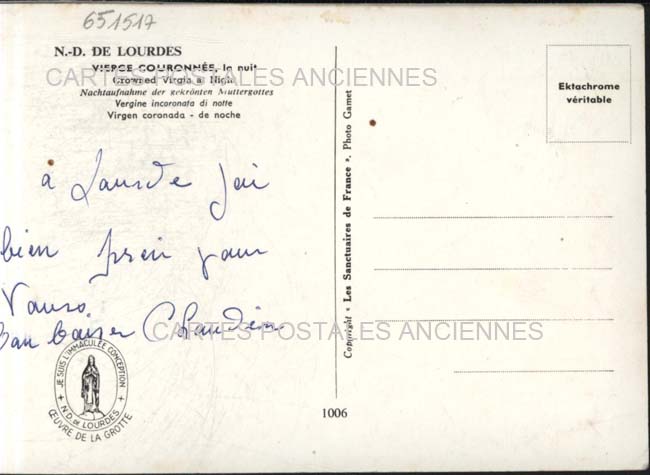 651517
N.-D. DE LOURDES
VIERGE COURONNÉE, la nuit
Crowned Virgin at Night
Nachtaufnahme der gekrönten Muttergottes
Vergine incoronata di notte
Virgen coronada - de noche
CARTES POSTALES ANCIENNES
Ektachrome
véritable
à Lourde jai
bien prei pour
Vous
Bon baiser
CARTES POSTALES ANCIENNES
Copyright « Les Sanctuaires de France ». Photo Gamet
JE SUIS L'IMMACULÉE CONCEPTION
N.D. DE LOURDES
ŒUVRE DE LA GROTTE
1006